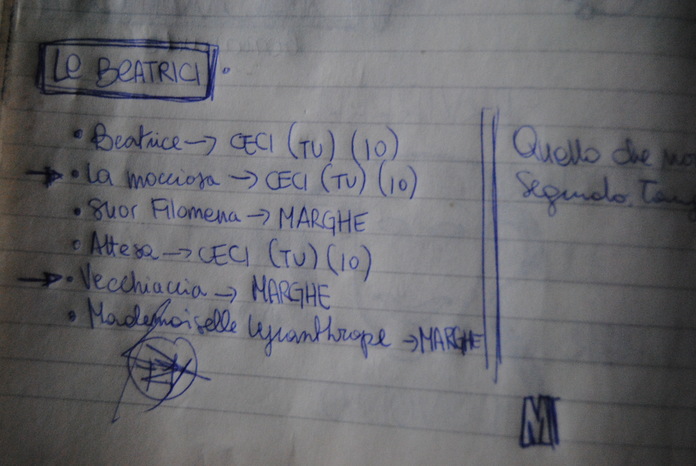 Le BEATRICI.
• Beatrice → CECI (TU) (IO)
→ • La mocciosa → CECI (TU) (IO)
• Suor Filomena → MARGHE
• Attesa → CECI (TU) (IO)
→ • Vecchiaccia → MARGHE
• Mademoiselle Lycanthrope → MARGHE
Quello che
Segundo.
M